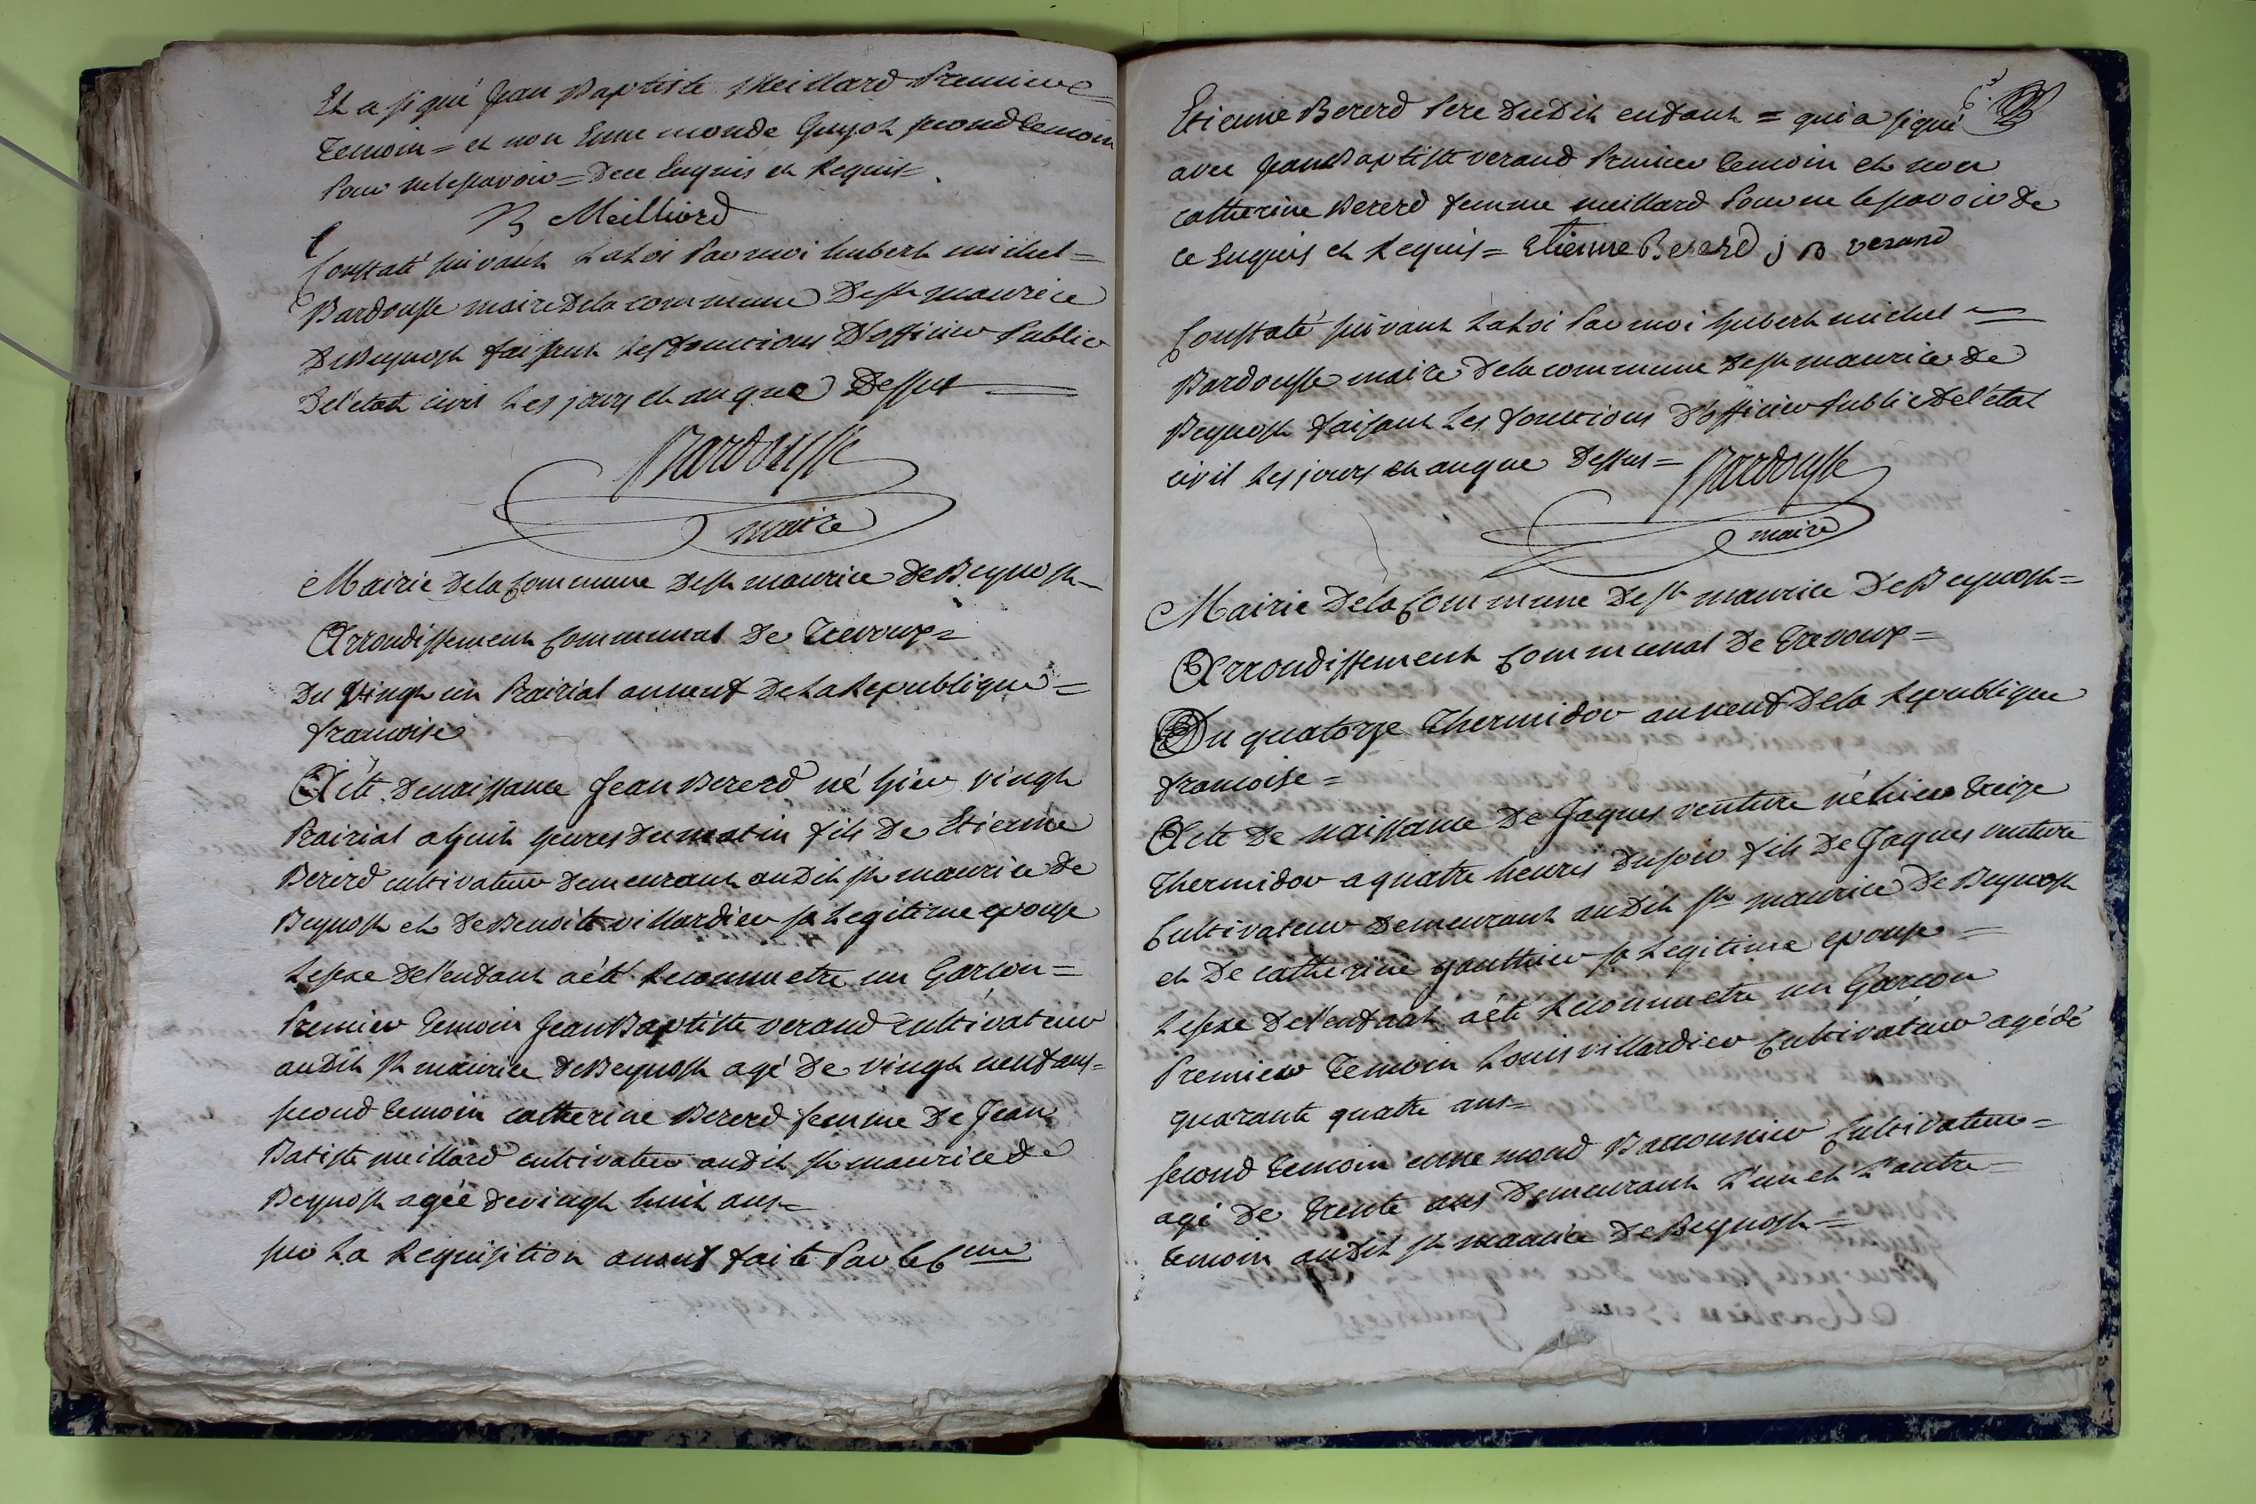 Et a signé Jean Baptiste Meillard Premier =
Temoin = et non Enne monde Guyot second temoin
Pour ne le scavoir = De ce Enquis et Requis =
B Meilliord
Constaté suivant La Loi Par moi hubert michel =
Bardousse maire De la commune De st maurice
De Beynost faisant Les fonctions D'officier Public
De l'etat civil Les jours et an que Dessus
Bardousse
maire
Mairie De la Commune De st maurice De Beynost
Arrondissement Communal De Trevoux =
Du Vingt un Prairial an neuf De La Republique =
francoise
Acte De naissance Jean Bererd né hier vingt
Prairial a huit heures du matin fils De Etienne
Bererd cultivateur Demeurant audit st maurice de
Beynost et De Benoite villardier sa Legitime epouse
Le sexe De l'enfant a été Reconnu etre un Garcon =
Premier Temoin Jean Baptiste verand cultivateur
audit st maurice De Beynost agé De vingt neuf ans =
second temoin catherine Bererd femme De Jean
Batiste meillard cultivateur audit st maurice de
Beynost agée de vingt huit ans =
sur La Requisition a nous faite Par le Cen
63
Etienne Bererd Pere Dudit enfant = qui a signé
avec Jean Baptiste verand Premier temoin et non
catherine Bererd femme meillard Pour ne le scavoir de
ce Enquis et Requis = Etienne Berard j B verand
Constaté suivant La Loi Par moi hubert michel
Bardousse maire De la commune De st maurice de
Beynost faisant Les fonctions D'officier Public De l'état
civil Les jours et an que Dessus = Bardousse
maire
Mairie De la Commune De st maurice De Beynost =
Arrondissement Communal De Trevoux =
Du quatorze Thermidor an neuf De la Republique
francoise =
Acte De naissance De Jaques venture né hier treize
Thermidor a quatre heures du soir fils De Jaques venture
Cultivateur Demeurant audit st maurice De Beynost
et De catherine gouttier sa Legitime epouse =
Le sexe De l'enfant a été Reconnu etre un Garcon
Premier Temoin Louis villardier Cultivateur agé de
quarante quatre ans =
second temoin enne mond Baconnier Cultivateur =
agé de trente ans Demeurant L'un et L'autre =
temoin audit st maurice De Beynost =